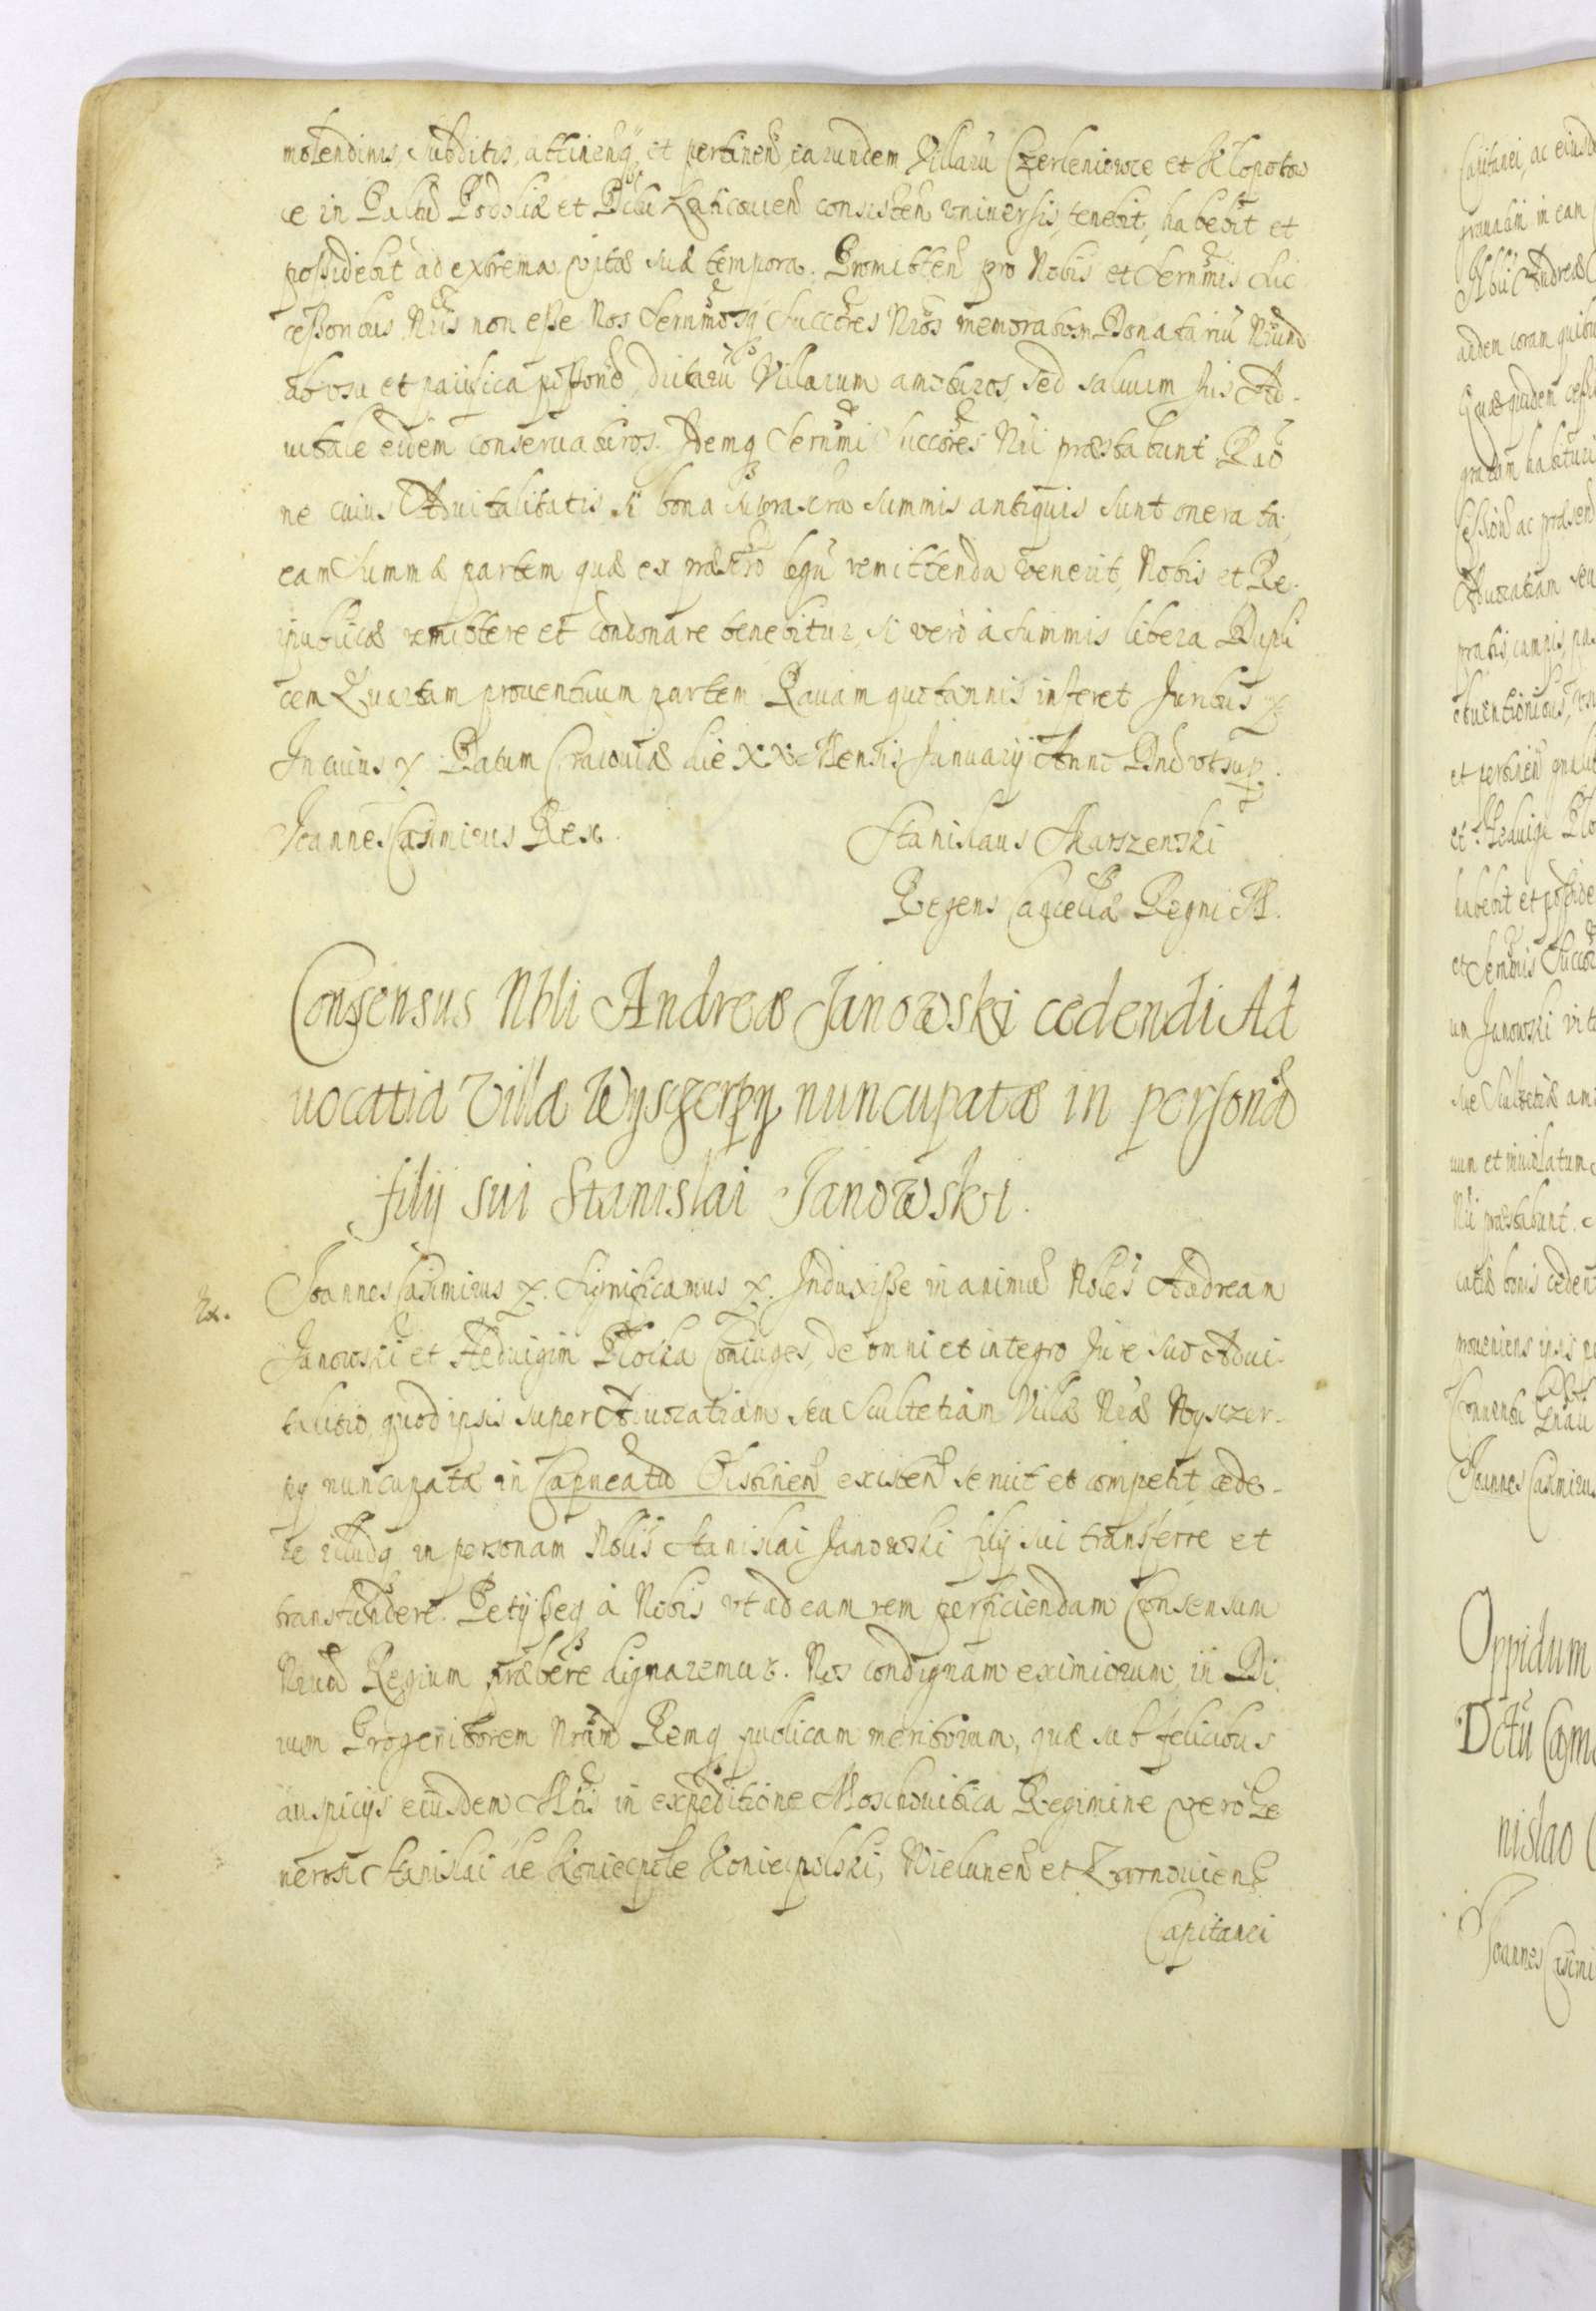 molendinis, subditis, attinen. et pertinen. earundem Villaru Czerleniowce et Klopotow
ce in Palttu Podoliæ et Dctu Laticouien. consisten. vniuersis, tenebit, habebit et
possidebit ad extrema vitæ suæ tempora. Promitten. pro Nobis et Sernmis Suc
cessoribus Nris non esse Nos Sernmosq Succores Nros memoratum Donatariu Nrum
ab vsu et paiifica possone dictaru Villarum amoturos, sed saluum Ius Ad.
uitale eidem conseruaturos. Idemq Sernmi Succores Nri præstabunt. Rao
ne cuius Aduitalitatis si bona suprascra summis antiquis sunt onerata,
eam Summæ partem quæ ex præscro legu remittenda venerit, Nobis et Re.
ipublicæ remittere et condonare tenebitur, si vero à summis libera Dupli
cem Quartam prouentuum partem Rauam quotannis inferet. Juribus
In cuius Datum Cracouiæ die XX Mensis January Anno Dni vt sup.
Joannes Casimirus Rex.
Stanislaus Skarszewski
Regens Cancellæ Regni
Consensus Nbli Andreæ Janowski cedendi Ad
uocatiâ Villæ Wysczerpy nuncupatæ in personâ
filij sui Stanislai Janowski.
Joannes Casimirus Significamus Induxisse in animu Nobles Andream
Janowski et Heduigim Coniuges, de omni et integro Jure suo Adui.
talitio, quod ipsis super Aduocatiam seu Scultetiam Villæ Nræ Wysczer.
py nuncupatæ in Capneatu Olstinen. existen. seruit et competit, cede.
re illudq in personam Nobis Stanislai Janowski filij sui transferre et
transfundere. Petijsseq à Nobis vt ad eam rem perficiendam Consensum
Nrum Regium præbere dignaremur. Nos condignam eximiorum in Di
uum Progenitorem Nrum Remq publicam meritorum, quæ sub felicibus
auspicijs eiusdem Mtis in expeditione Moschouitica Regimine vero Ge
nerosi Stanislai de Koniecpole Koniecpolski, Wielunen. et Zarnouiens
Capitanei
Capitanei, ac eiusd
in eam
Andreæ
coram quibu
Quæ quidem cessi
gratam habituri
ac præsen
Aduocatiam seu
pratis, campis,
obuentionibus,
et pertinen.
et Heduigi
habebit et posside
et Sernmis Succor
um Janowski vit
Scultetiæ
uum et inuiolatum
Nri præstabunt.
bonis
Joannes Casimirus
Oppidum
Dctu
nislao
Joannes Casimi